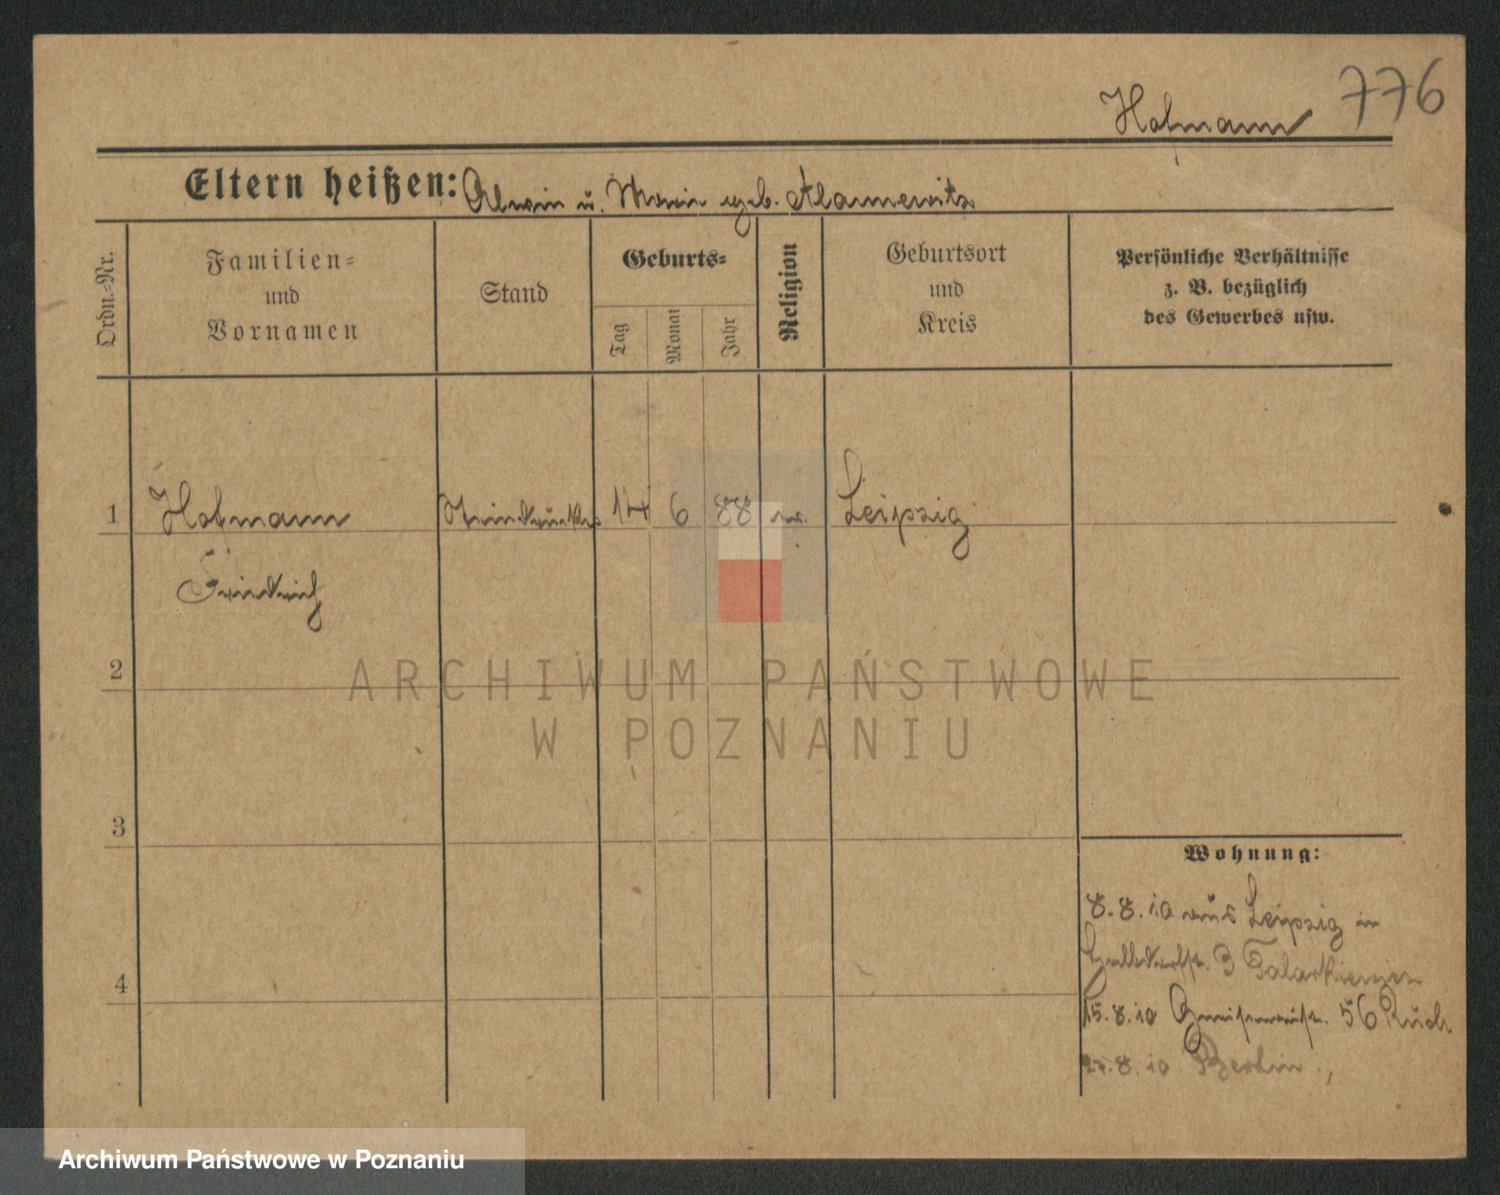 776
Hofmann
Eltern heißen: Alwin u. Marie geb.
Ordn.-Nr.
Familien-
und
Vornamen
Stand
Geburts-
Tag
Monat
Jahr
Religion
Geburtsort
und
Kreis
Persönliche Verhältnisse
z. B. bezüglich
des Gewerbes usw.
1 Hofmann Steindrucker 14 6 88 ev. Leipzig
Friedrich
2
3
4
Wohnung:
8.8.10 aus Leipzig in
3
15.8.10 Gneisenaustr. 56
8.10 Berlin
ARCHIWUM PAŃSTWOWE
W POZNANIU
Archiwum Państwowe w Poznaniu